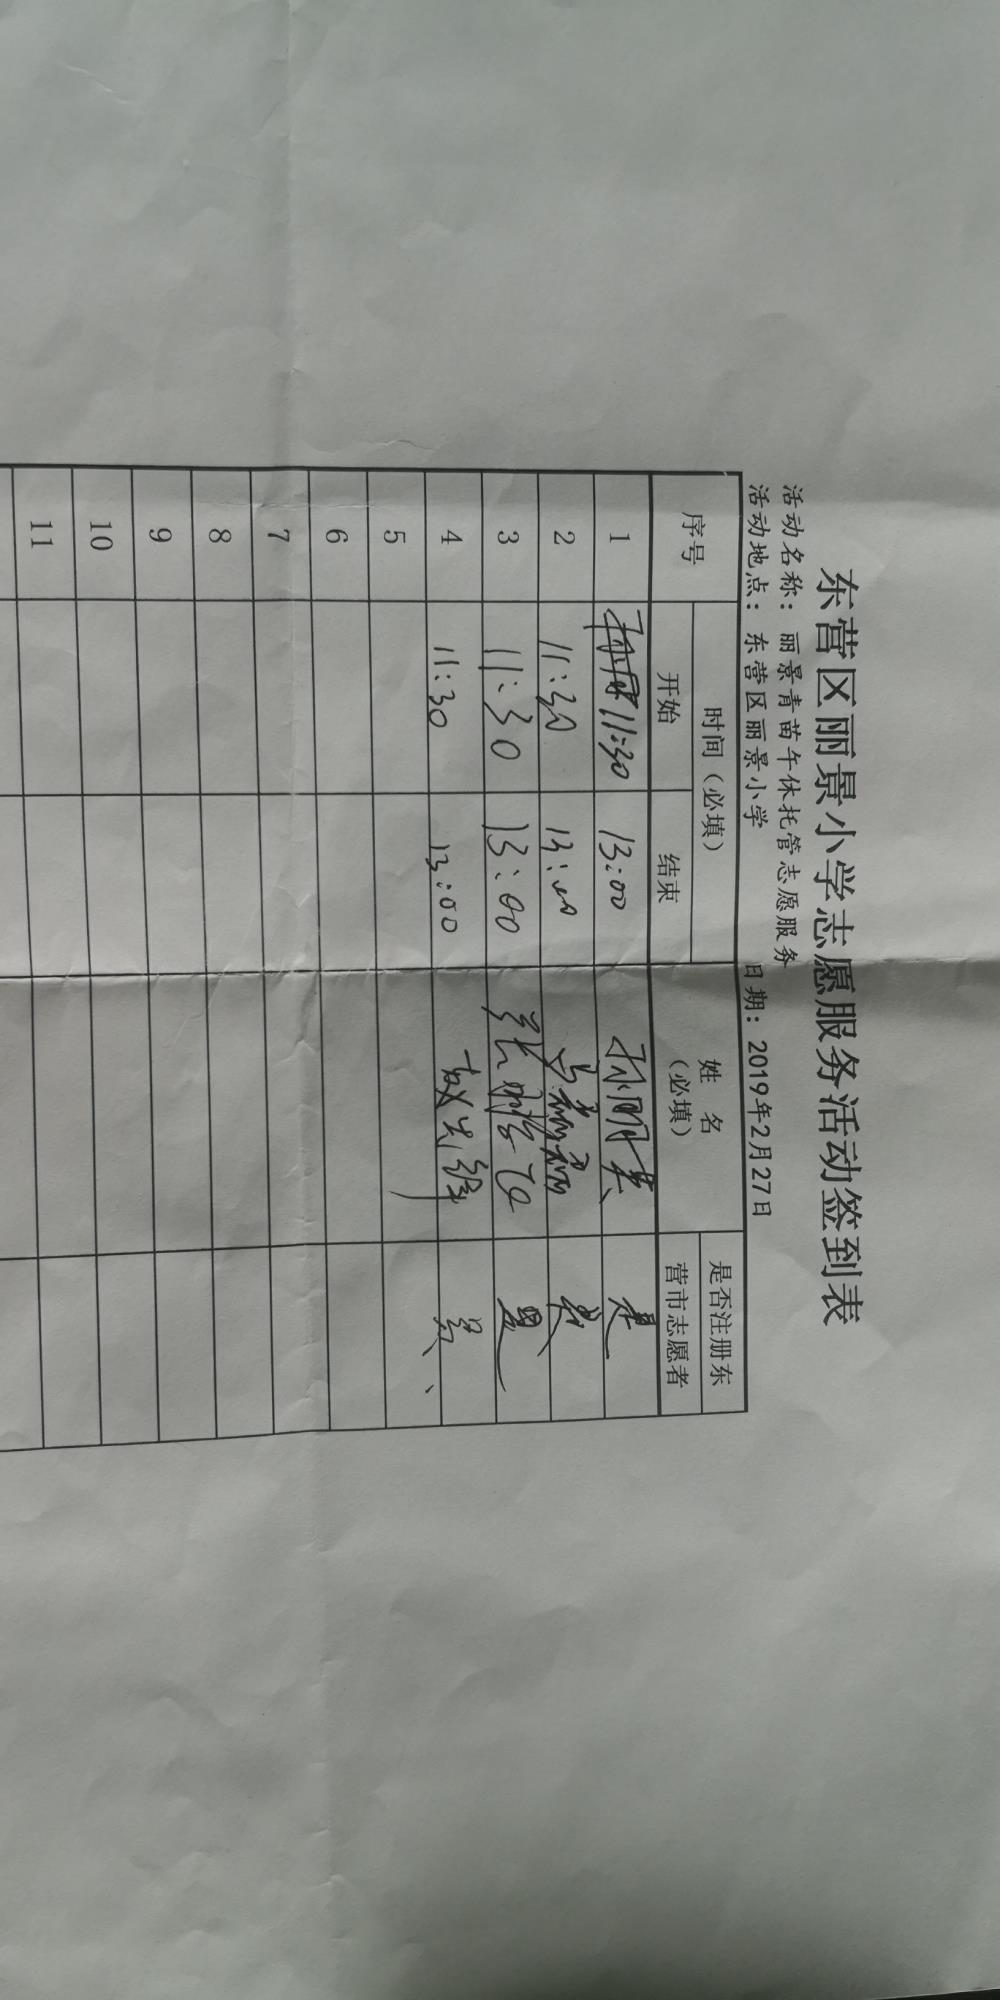 东营区丽景小学志愿服务活动签到表
活动名称：丽景青苗午休托管志愿服务
活动地点：东营区丽景小学 日期：2019年2月27日
序号 时间（必填） 姓名（必填） 是否注册东营市志愿者
开始 结束
1 11:30 13:00 是
2 11:30 13:00 是
3 11:30 13:00 是
4 11:30 13:00 是
5
6
7
8
9
10
11